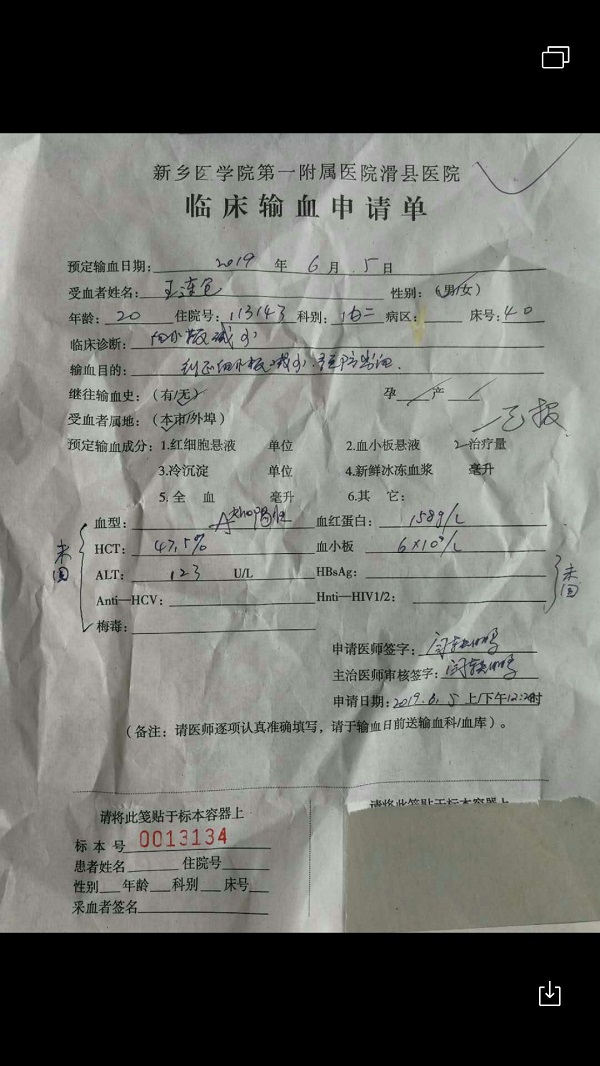 新乡医学院第一附属医院滑县医院
临床输血申请单
预定输血日期: 2019 年 6 月 5 日
受血者姓名: 性别: (男/女)
年龄: 20 住院号: 113143 科别: 内二 病区: 床号: 40
临床诊断: 血小板减少
输血目的: 纠正血小板减少、预防出血
继往输血史: (有/无) 孕 产
受血者属地: (本市/外埠)
预定输血成分: 1.红细胞悬液 单位 2.血小板悬液 治疗量
3.冷沉淀 单位 4.新鲜冰冻血浆 毫升
5.全 血 毫升 6.其 它:
血型: A Rho阳性 血红蛋白: 158g/L
HCT: 47.5% 血小板 6×10⁹/L
未回 ALT: 123 U/L HBsAg: 未回
Anti—HCV: Hnti—HIV1/2:
梅毒:
申请医师签字:
主治医师审核签字:
申请日期: 2019.6.5 上/下午12:20时
(备注: 请医师逐项认真准确填写, 请于输血日前送输血科/血库)。
请将此笺贴于标本容器上 请将此笺贴于标本容器上
标 本 号 0013134
患者姓名 住院号
性别 年龄 科别 床号
采血者签名